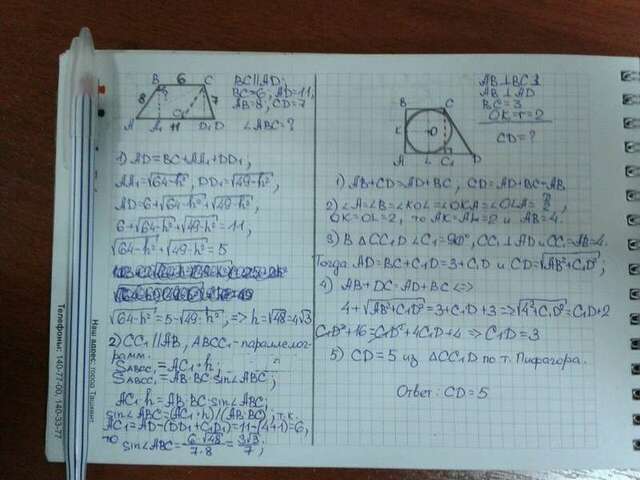 B 6 C
8 7
A A₁ 11 D₁ D
BC∥AD;
BC=6, AD=11,
AB=8, CD=7
∠ABC=?
1) AD=BC+AA₁+DD₁,
AA₁=√64-h², DD₁=√49-h²,
AD=6+√64-h²+√49-h²,
6+√64-h²+√49-h²=11,
√64-h²+√49-h²=5
√64-h²=5-√49-h², => h=√48=4√3
2) CC₁∥AB, ABCC₁-параллелог-
рамм.
S_ABCC₁=AC₁·h;
S_ABCC₁=AB·BC·sin∠ABC;
AC₁·h=AB·BC·sin∠ABC;
sin∠ABC=(AC₁·h)/(AB·BC); т.к.
AC₁=AD-(DD₁+C₁D₁)=11-(4+1)=6,
то sin∠ABC=6·√48/7·8=3√3/7;
AB⊥BC
AB⊥AD
BC=3
OK=r=2
CD=?
B C
K O
A L C₁ D
1) AB+CD=AD+BC, CD=AD+BC-AB
2) ∠A=∠B=∠KOL=∠OKA=∠OLA=π/2,
OK=OL=2, то AK=AL=2 и AB=4.
3) В △CC₁D ∠C₁=90°, CC₁⊥AD и CC₁=AB=4.
Тогда AD=BC+C₁D=3+C₁D и CD=√AB²+C₁D²;
4) AB+DC=AD+BC <=>
4+√AB²+C₁D²=3+C₁D+3=>√4²+C₁D²=C₁D+2
C₁D²+16=C₁D²+4C₁D+4 => C₁D=3
5) CD=5 из △CC₁D по т. Пифагора.
Ответ: CD=5
Наш адрес: город Ташкент
Телефоны: 140-77-00, 140